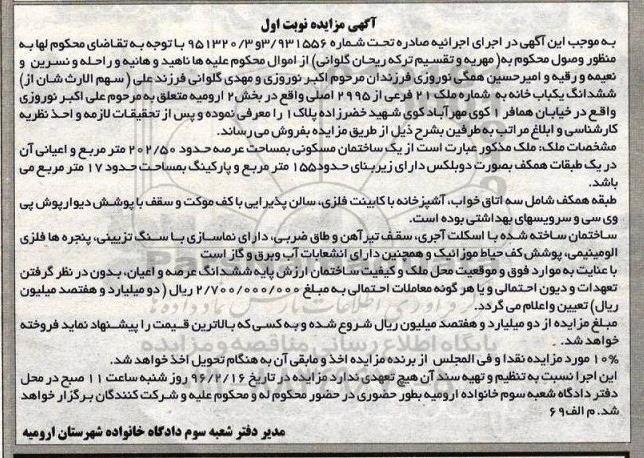 آگهی مزایده نوبت اول
به موجب این آگهی در اجرای اجرائیه صادره تحت شماره 3/931556و 951320/3 با توجه به تقاضای محکوم لها به
منظور وصول محکوم به( مهریه و تقسیم ترکه ریحان گلوانی) از اموال محکوم علیه ها ناهید و هانیه و راحله و نسرین و
نعیمه و رقیه و امیرحسین همگی نوروزی فرزندان مرحوم اکبر نوروزی و مهدی گلوانی فرزند علی ( سهم الارث شان از)
ششدانگ یکباب خانه به شماره ملک 21 فرعی از 2995 اصلی واقع در بخش2 ارومیه متعلق به مرحوم علی اکبر نوروزی
واقع در خیابان همافر 1 کوی مهرآباد کوی شهید خضرزاده پلاک1 را معرفی نموده و پس از تحقیقات لازمه و اخذ نظریه
کارشناسی و ابلاغ مراتب به طرفین بشرح ذیل از طریق مزایده بفروش می رساند.
مشخصات ملک: ملک مذکور عبارت است از یک ساختمان مسکونی بمساحت عرصه حدود 202/50 متر مربع و اعیانی آن
در یک طبقات همکف بصورت دوبلکس دارای زیربنای حدود155 متر مربع و پارکینگ بمساحت حدود 17 متر مربع می
باشد.
طبقه همکف شامل سه اتاق خواب، آشپزخانه با کابینت فلزی، سالن پذیرایی با کف موکت و سقف با پوشش دیوارپوش پی
وی سی و سرویسهای بهداشتی بوده است.
ساختمان ساخته شده با اسکلت آجری، سقف تیرآهن و طاق ضربی، دارای نماسازی با سنگ تزیینی، پنجره ها فلزی
الومینیمی، پوشش کف حیاط موزائیک و همچنین دارای انشعابات آب وبرق و گاز است
با عنایت به موارد فوق و موقعیت محل ملک و کیفیت ساختمان ارزش پایه ششدانگ عرصه و اعیان، بدون در نظر گرفتن
تعهدات و دیون احتمالی و یا هر گونه معاملات احتمالی به مبلغ 2/700/000/000 ریال ( دو میلیارد و هفتصد میلیون
ریال) تعیین واعلام می گردد.
مبلغ مزایده از دو میلیارد و هفتصد میلیون ریال شروع شده و به کسی که بالاترین قیمت را پیشنهاد نماید فروخته
خواهد شد.
10% مورد مزایده نقدا و فی المجلس از برنده مزایده اخذ و مابقی آن به هنگام تحویل اخذ خواهد شد.
این اجرا نسبت به تنظیم و تهیه سند آن هیچ تعهدی ندارد مزایده در تاریخ 96/2/16 روز شنبه ساعت 11 صبح در محل
دفتر دادگاه شعبه سوم خانواده ارومیه بطور حضوری در حضور محکوم له و محکوم علیه و شرکت کنندگان برگزار خواهد
شد. م الف 69
مدیر دفتر شعبه سوم دادگاه خانواده شهرستان ارومیه